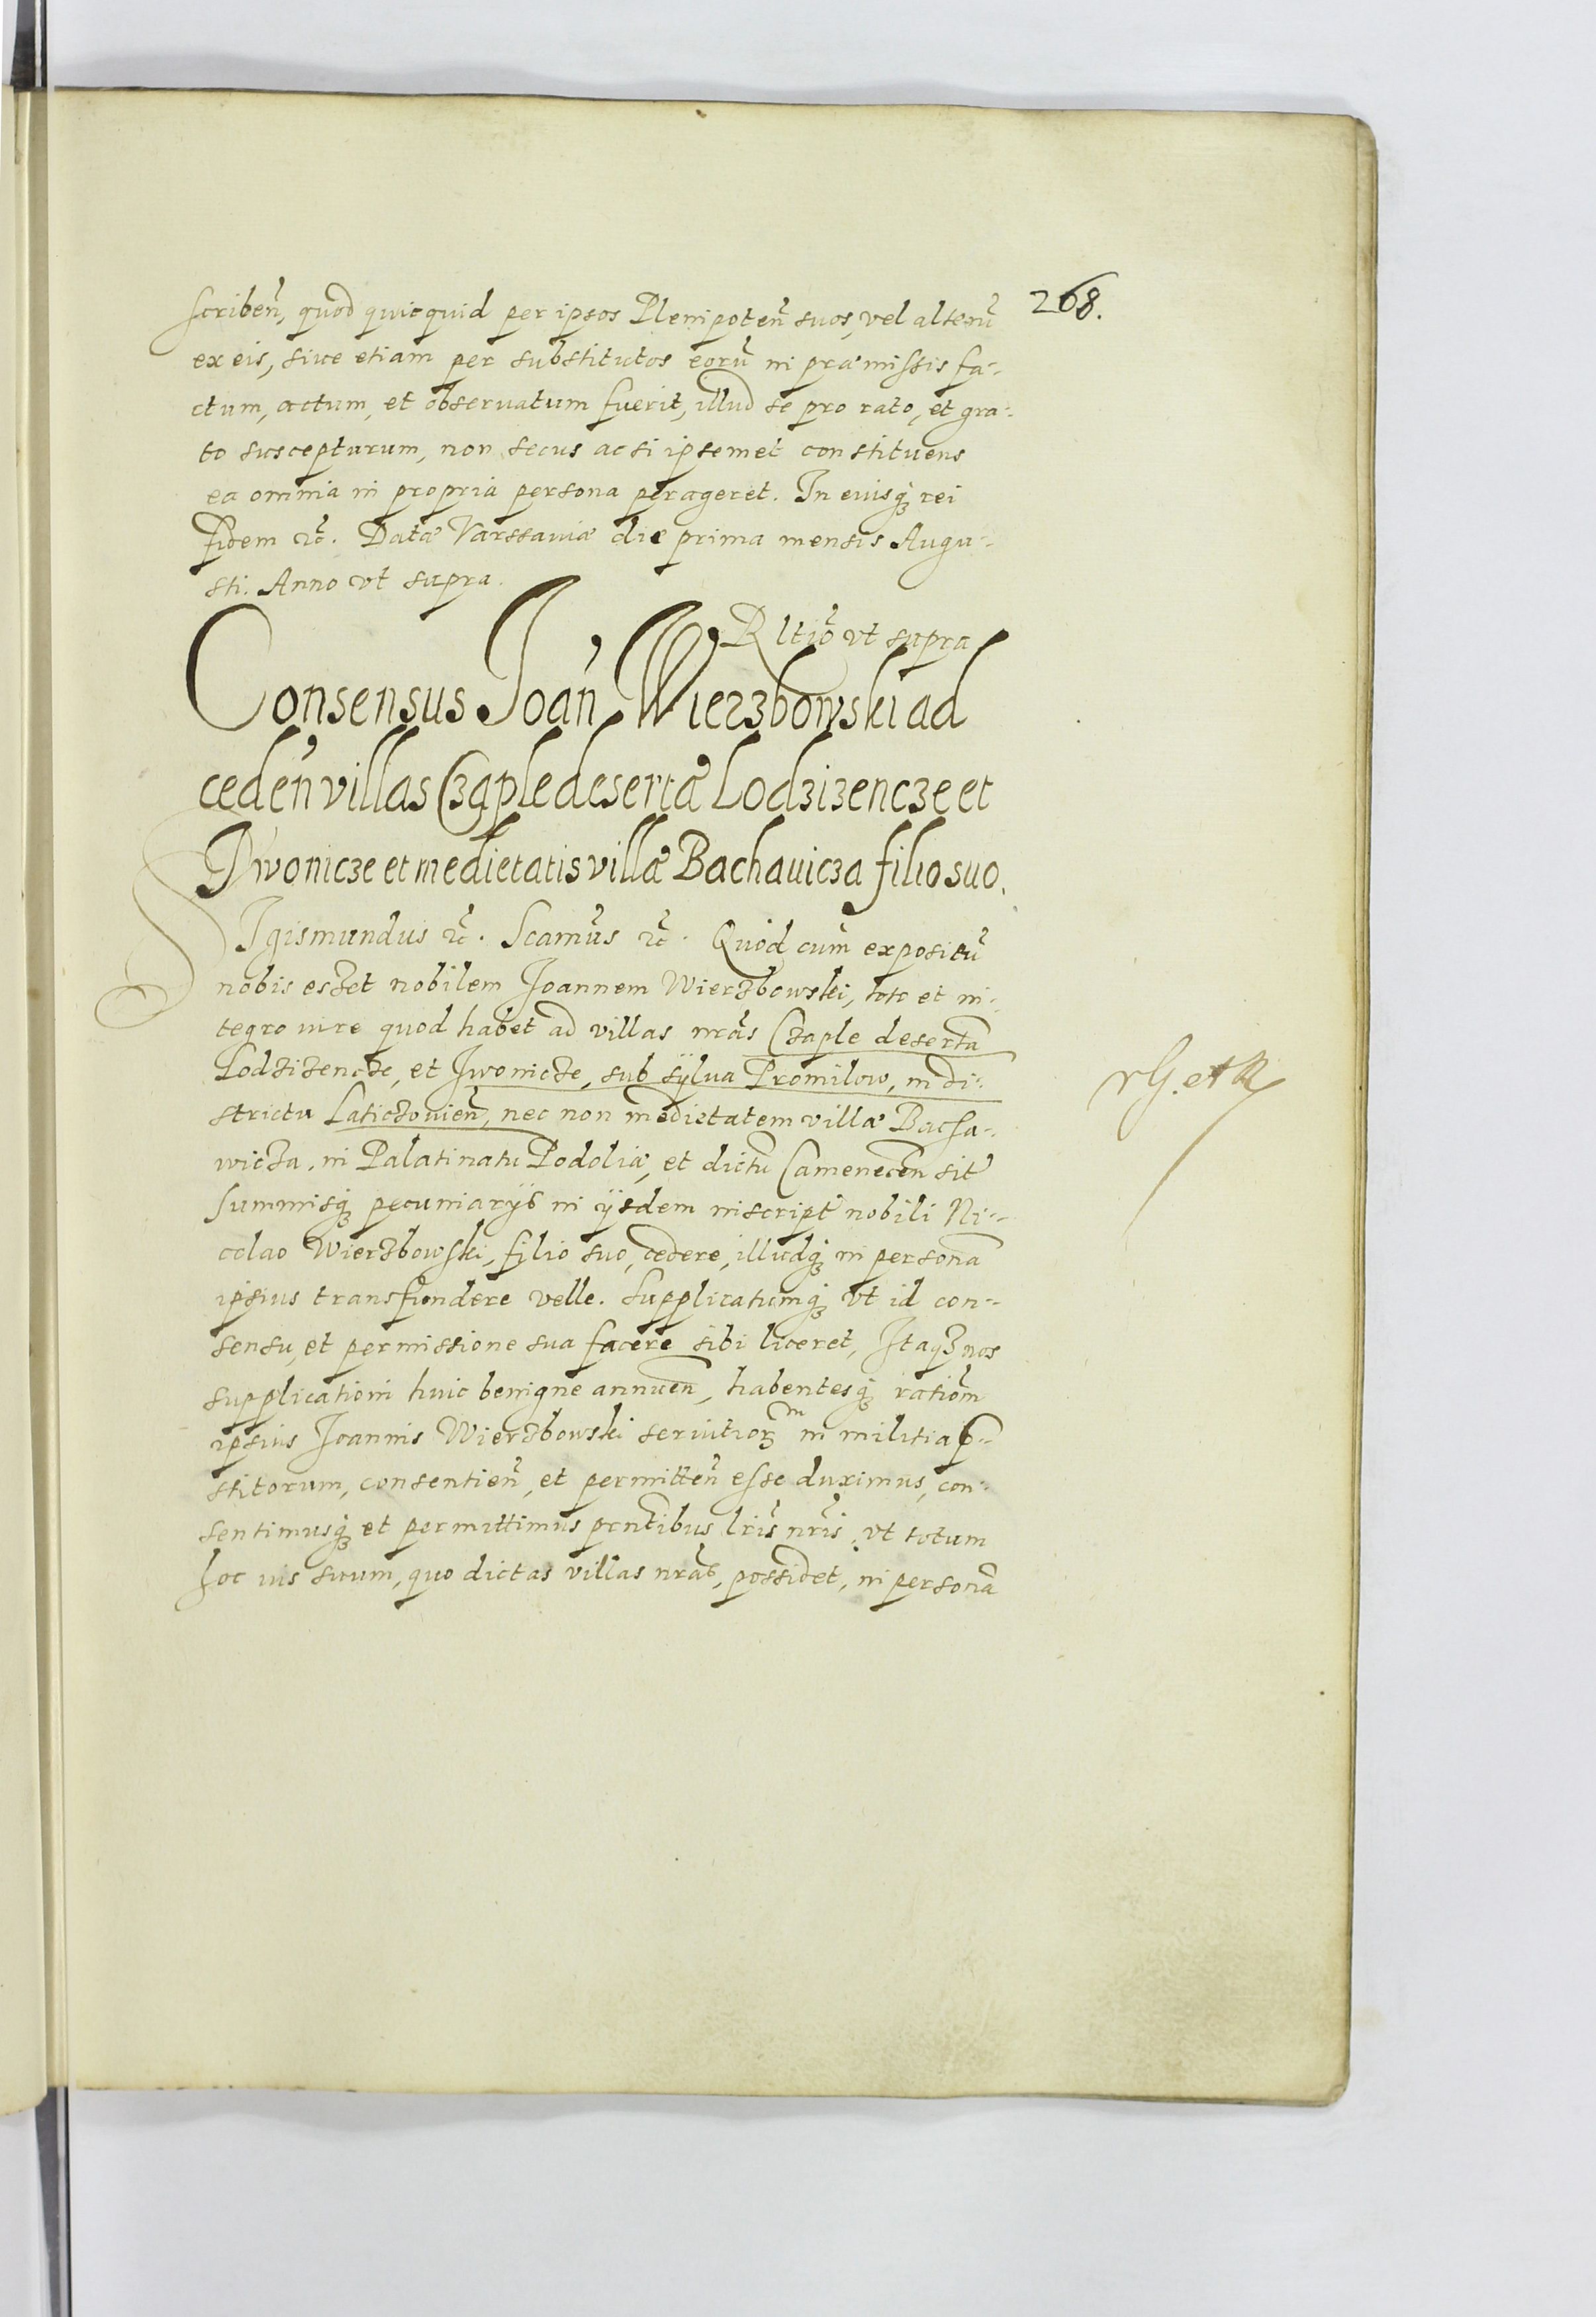 268.
scriben̄, quod quicquid per ipsos Plenipoten̄ suos, vel alterū
ex eis, siue etiam per substitutos eorū in præmissis fa-
ctum, actum, et obseruatum fuerit, illud se pro rato, et gra-
to suscepturum, non secus ac si ipsemet constituens
ea omnia in propria persona perageret. In cuiusq3 rei
fidem ꝛc̄. Datæ Varssauiæ die prima mensis Augu-
sti. Anno vt supra.
Rltiō vt supra
Consensus Joan̄ Wierzbowski ad
ceden̄ villas Czaple desertā Lodzizencze et
Jwonicze et medietatis villæ Bachauicza filio suo.
SIgismundus ꝛc̄. Scamūs ꝛc̄. Quod cum expositū
nobis eszet nobilem Joannem Wierzbowski, toto et in-
tegro iure quod habet ad villas nrās Czaple desertā
Lodzizencze, et Jwonicze, sub sylua Promilow, in di-
strictu Laticzouien̄, nec non medietatem villæ Bacha-
wicza, in Palatinatu Podoliæ, et dictū Camenecen̄ sit
summisq3 pecuniarijs in ijsdem inscript nobili Ni-
colao Wierzbowski, filio suo, cedere, illudq3 in personā
ipsius transfundere velle. Supplicatumq3 vt id con-
sensu, et permissione sua facere sibi liceret, Itaq3 nos
supplicationi huic benigne annuen̄, habentesq3 ratiōm
ipsius Joannis Wierzbowski seruitior̄ in militia p̄-
stitorum, consentien̄, et permitten̄ esse duximus, con-
sentimusq3 et permittimus prn̄tibus lris̄ nris̄, vt totum
hoc ius suum, quo dictas villas nrās, possidet, in personā